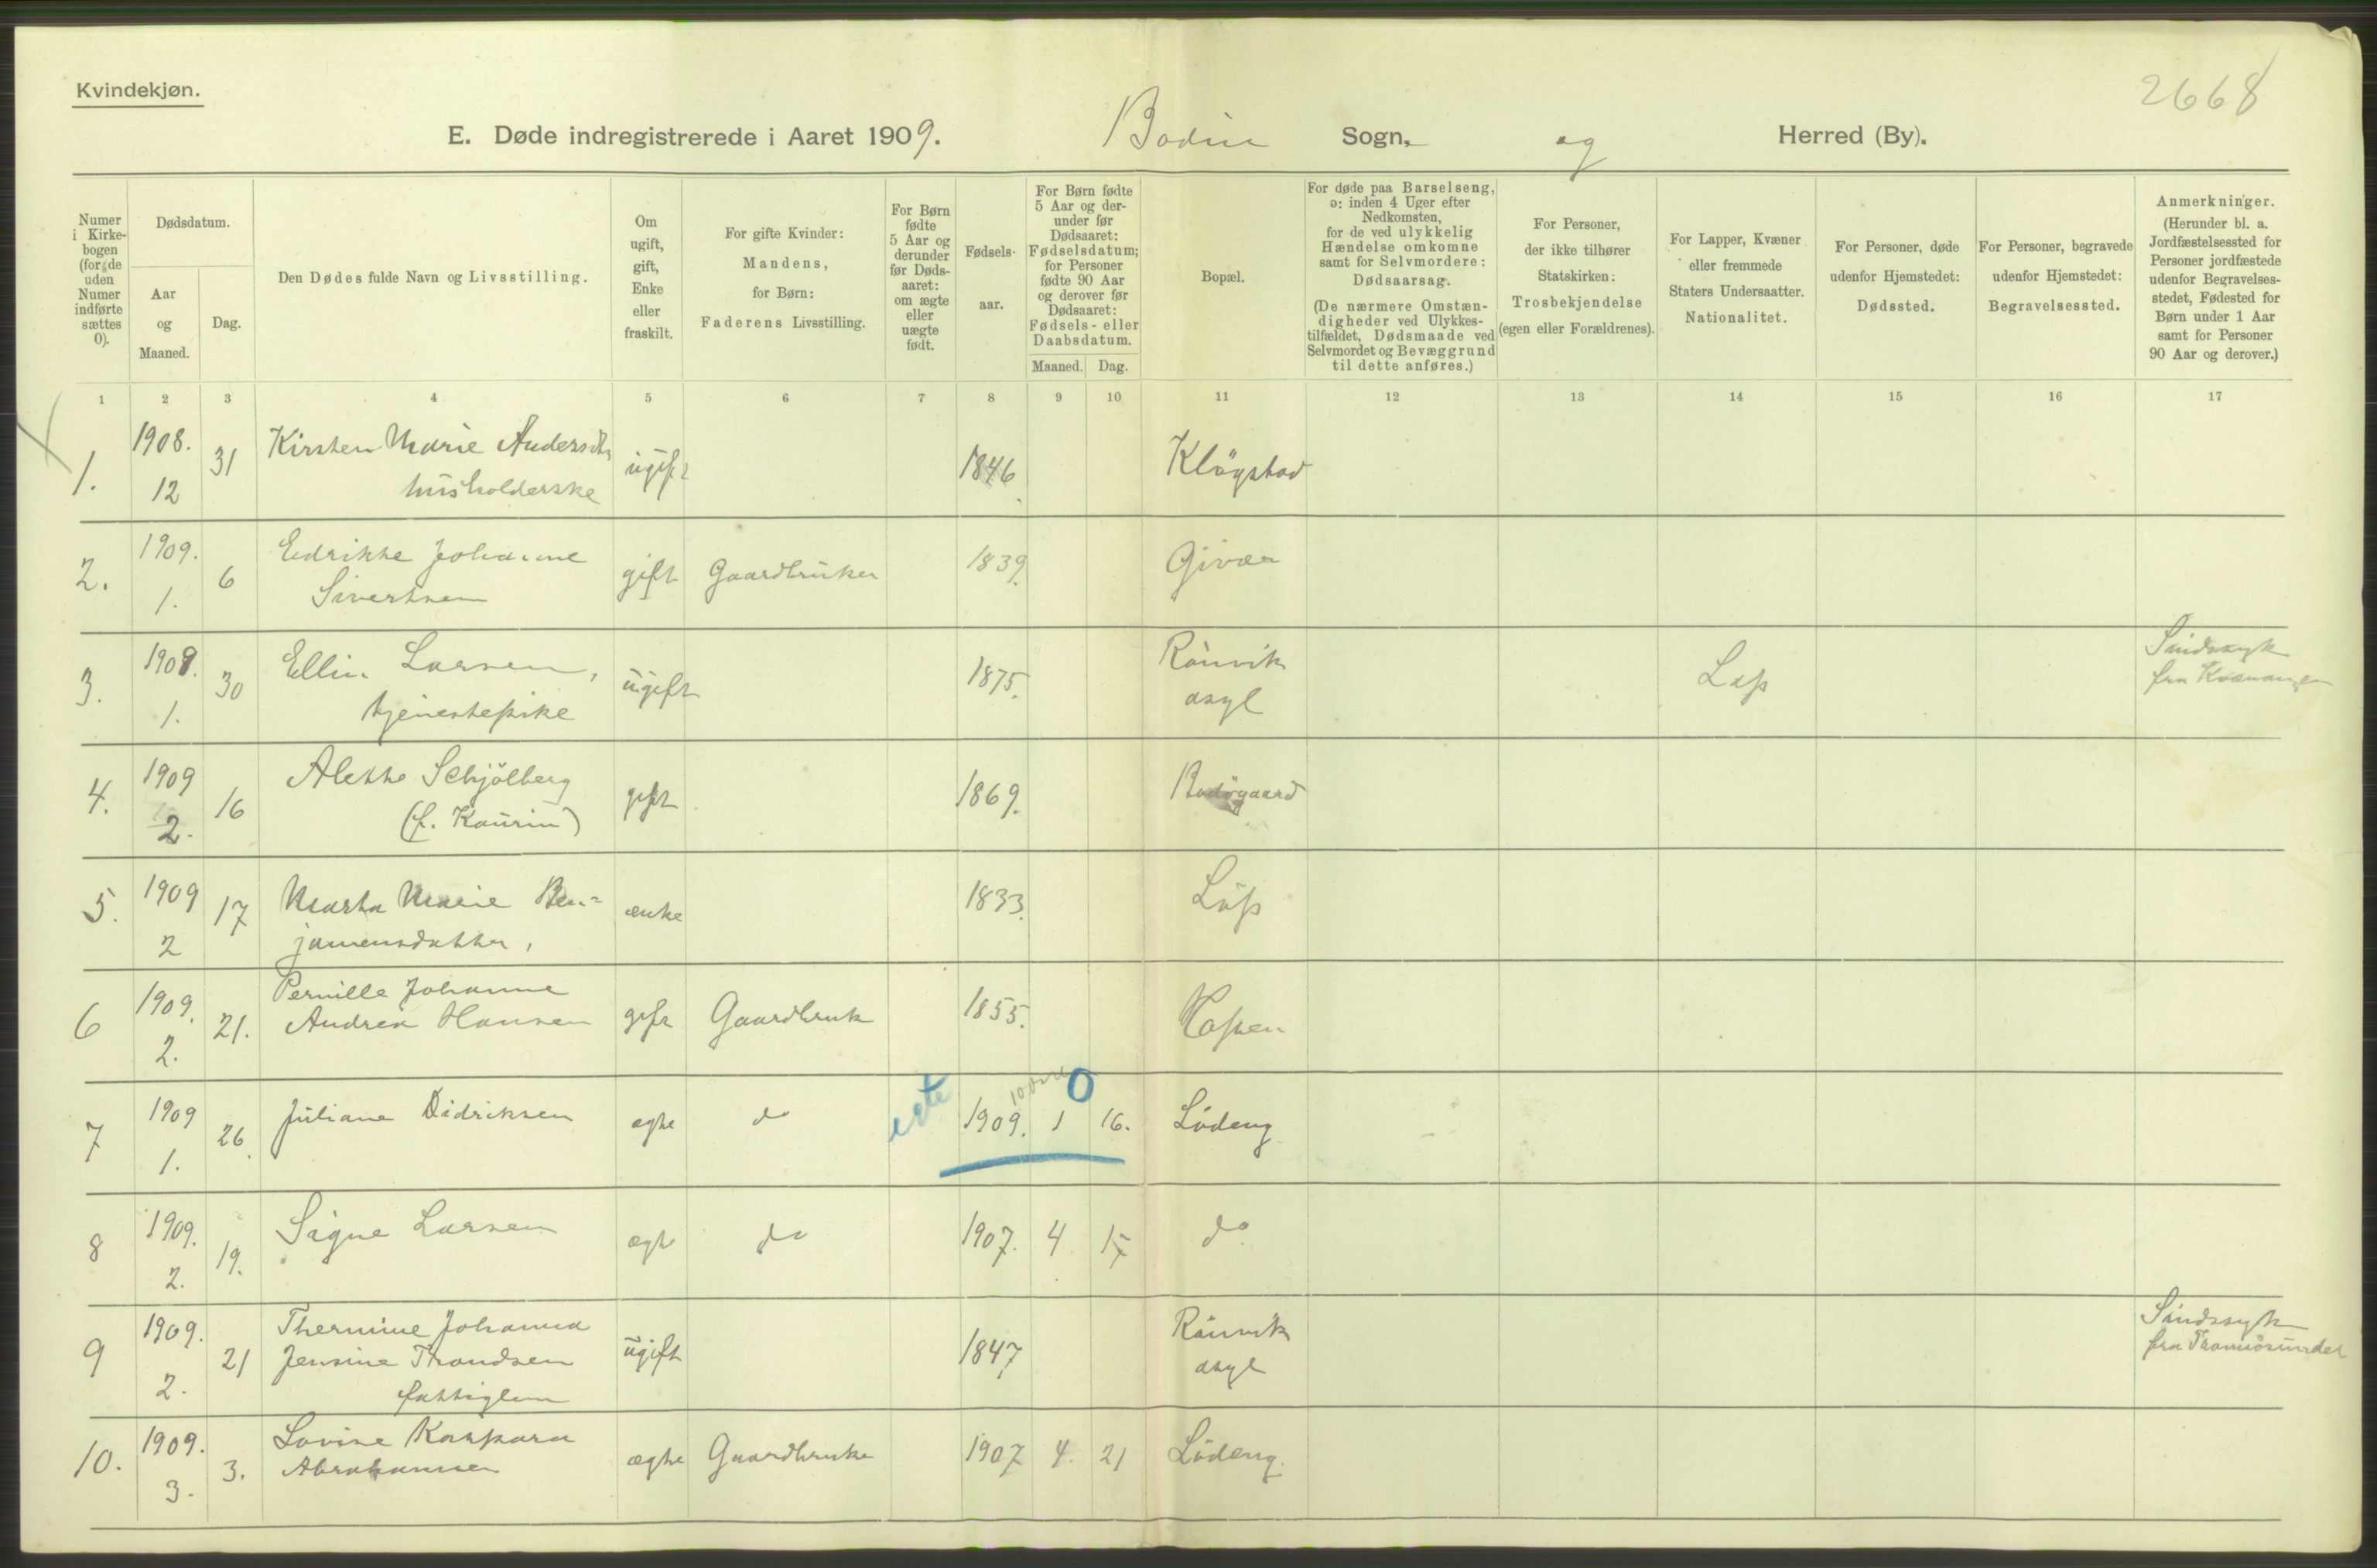 Kvindekjøn.
2668
E. Døde indregistrerede i Aaret 1909. Bodin Sogn, og Herred (By).
Numer i Kirkebogen (for de uden Numer indførte sættes 0).
Dødsdatum.
Aar og Maaned.
Dag.
Den Dødes fulde Navn og Livsstilling.
Om ugift, gift, Enke eller fraskilt.
For gifte Kvinder: Mandens, for Børn: Faderens Livsstilling.
For Børn fødte 5 Aar og derunder før Dødsaaret: om ægte eller uægte født.
Fødselsaar.
For Børn fødte 5 Aar og derunder før Dødsaaret: Fødselsdatum; for Personer fødte 90 Aar og derover før Dødsaaret: Fødsels- eller Daabsdatum.
Maaned. Dag.
Bopæl.
For døde paa Barselseng, ɔ: inden 4 Uger efter Nedkomsten, for de ved ulykkelig Hændelse omkomne samt for Selvmordere: Dødsaarsag. (De nærmere Omstændigheder ved Ulykkestilfældet, Dødsmaade ved Selvmordet og Bevæggrund til dette anføres.)
For Personer, der ikke tilhører Statskirken: Trosbekjendelse (egen eller Forældrenes).
For Lapper, Kvæner eller fremmede Staters Undersaatter. Nationalitet.
For Personer, døde udenfor Hjemstedet: Dødssted.
For Personer, begravede udenfor Hjemstedet: Begravelsessted.
Anmerkninger. (Herunder bl. a. Jordfæstelsessted for Personer jordfæstede udenfor Begravelsesstedet, Fødested for Børn under 1 Aar samt for Personer 90 Aar og derover.)
1 2 3 4 5 6 7 8 9 10 11 12 13 14 15 16 17
1. 1908. 12 31 Kirsten Marie Andersdtr husholderske ugift 1846 Kløgstad
2. 1909. 1. 6 Edrikke Johanne Sivertsen gift Gaardbruker 1839. Givær
3. 1909. 1. 30 Ellin Larsen, tjenestepike ugift 1875. Rönvik asyl Lap Sindssyk fra Kvænangen
4. 1909 2. 16 Alette Schjölberg (f. Kaurin) gift 1869. Bodøgaard
5. 1909 2 17 Marta Marie Benjamensdatter, enke 1833. Löp
6 1909. 2. 21. Pernille Johanne Andrea Hansen gift Gaardbruk 1855. Kopen
7 1909 1. 26. Juliane Didriksen ægte do ekte 1909. 10 0 1 16. Lödeng
8 1909. 2. 19. Signe Larsen ægte do 1907. 4 15 do
9 1909. 2. 21 Thermine Johanna Jensine Trondsen fattiglem ugift 1847 Rönvik asyl Sindssyk fra Tromösundet
10. 1909. 3. 3. Lovise Kaspara Abrahamsen ægte Gaardbruke 1907 4. 21 Lödeng.